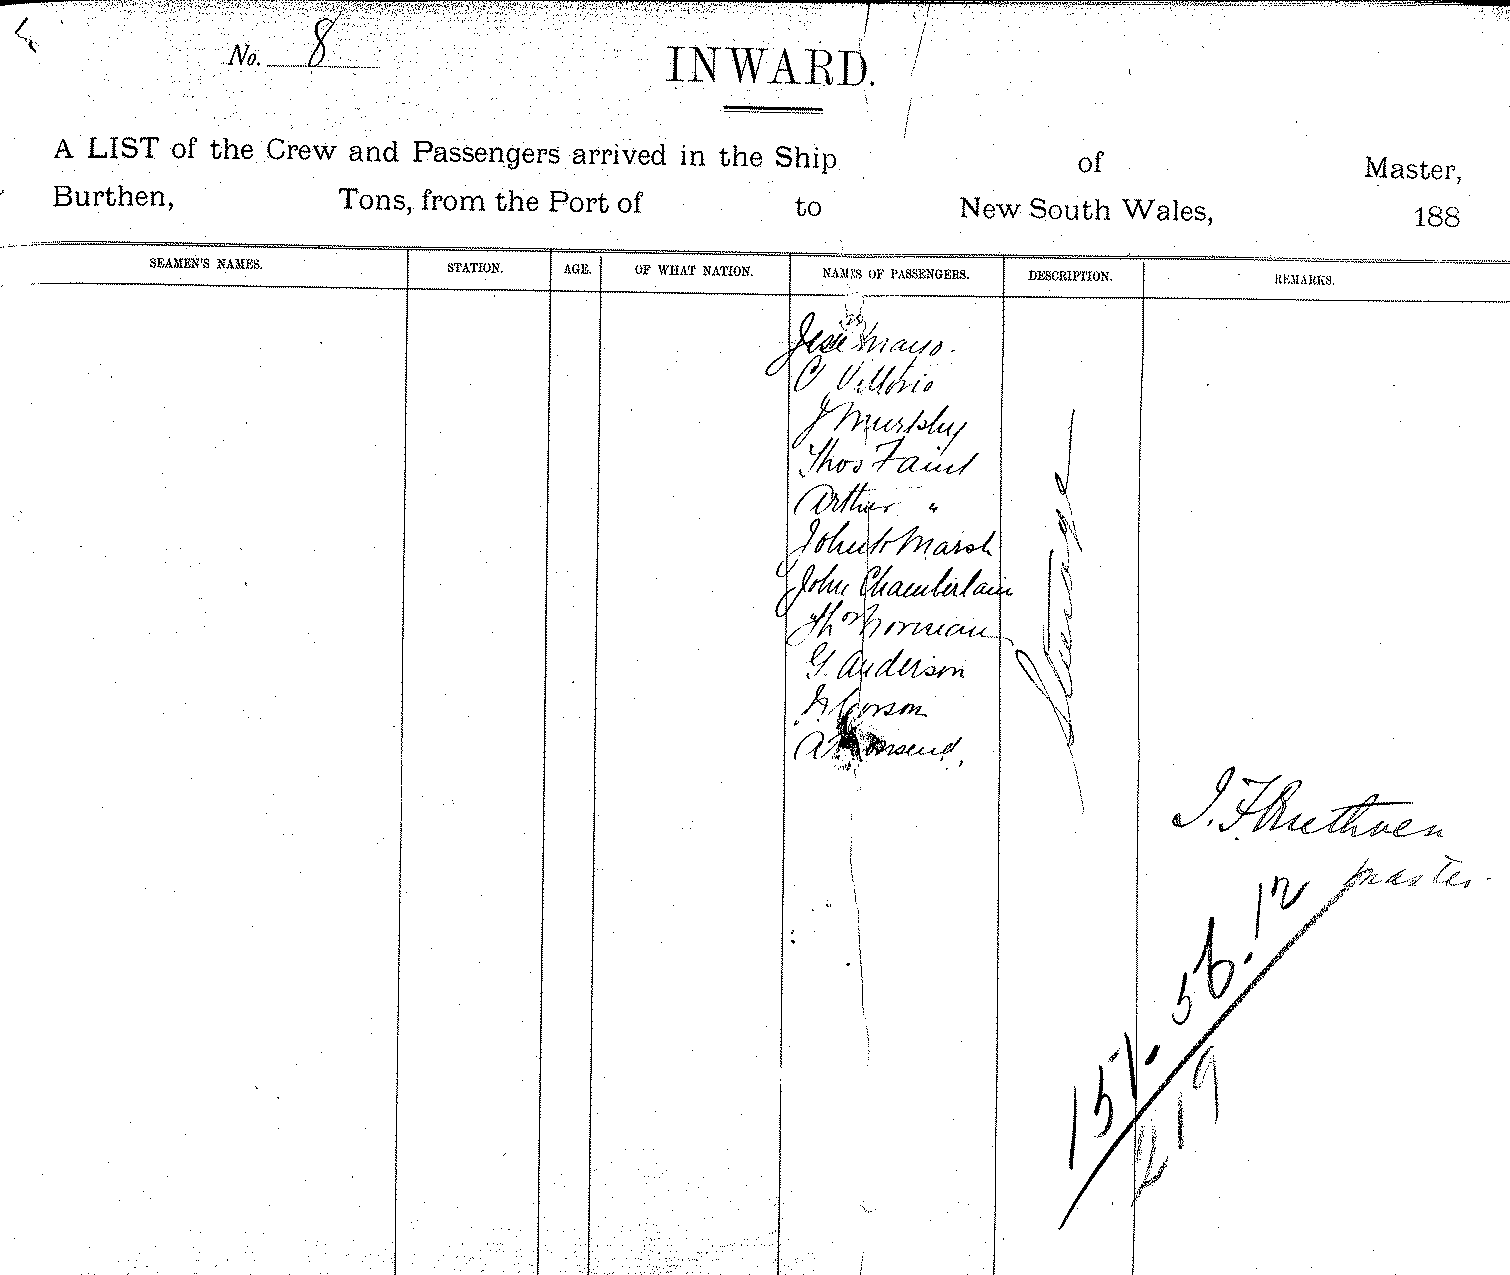 No. 8
INWARD.
A LIST of the Crew and Passengers arrived in the Ship of Master,
Burthen, Tons, from the Port of to New South Wales, 188
SEAMEN'S NAMES. STATION. AGE. OF WHAT NATION. NAMES OF PASSENGERS. DESCRIPTION. REMARKS.
Mayo.
C Vittorio
J Murphy
Thos Faint
Arthur "
John Marsh
John Chamberlain
Thos Norman
G. Anderson
Corson
Steerage
J. F. Ruthven
Master.
151. 56. 12
219